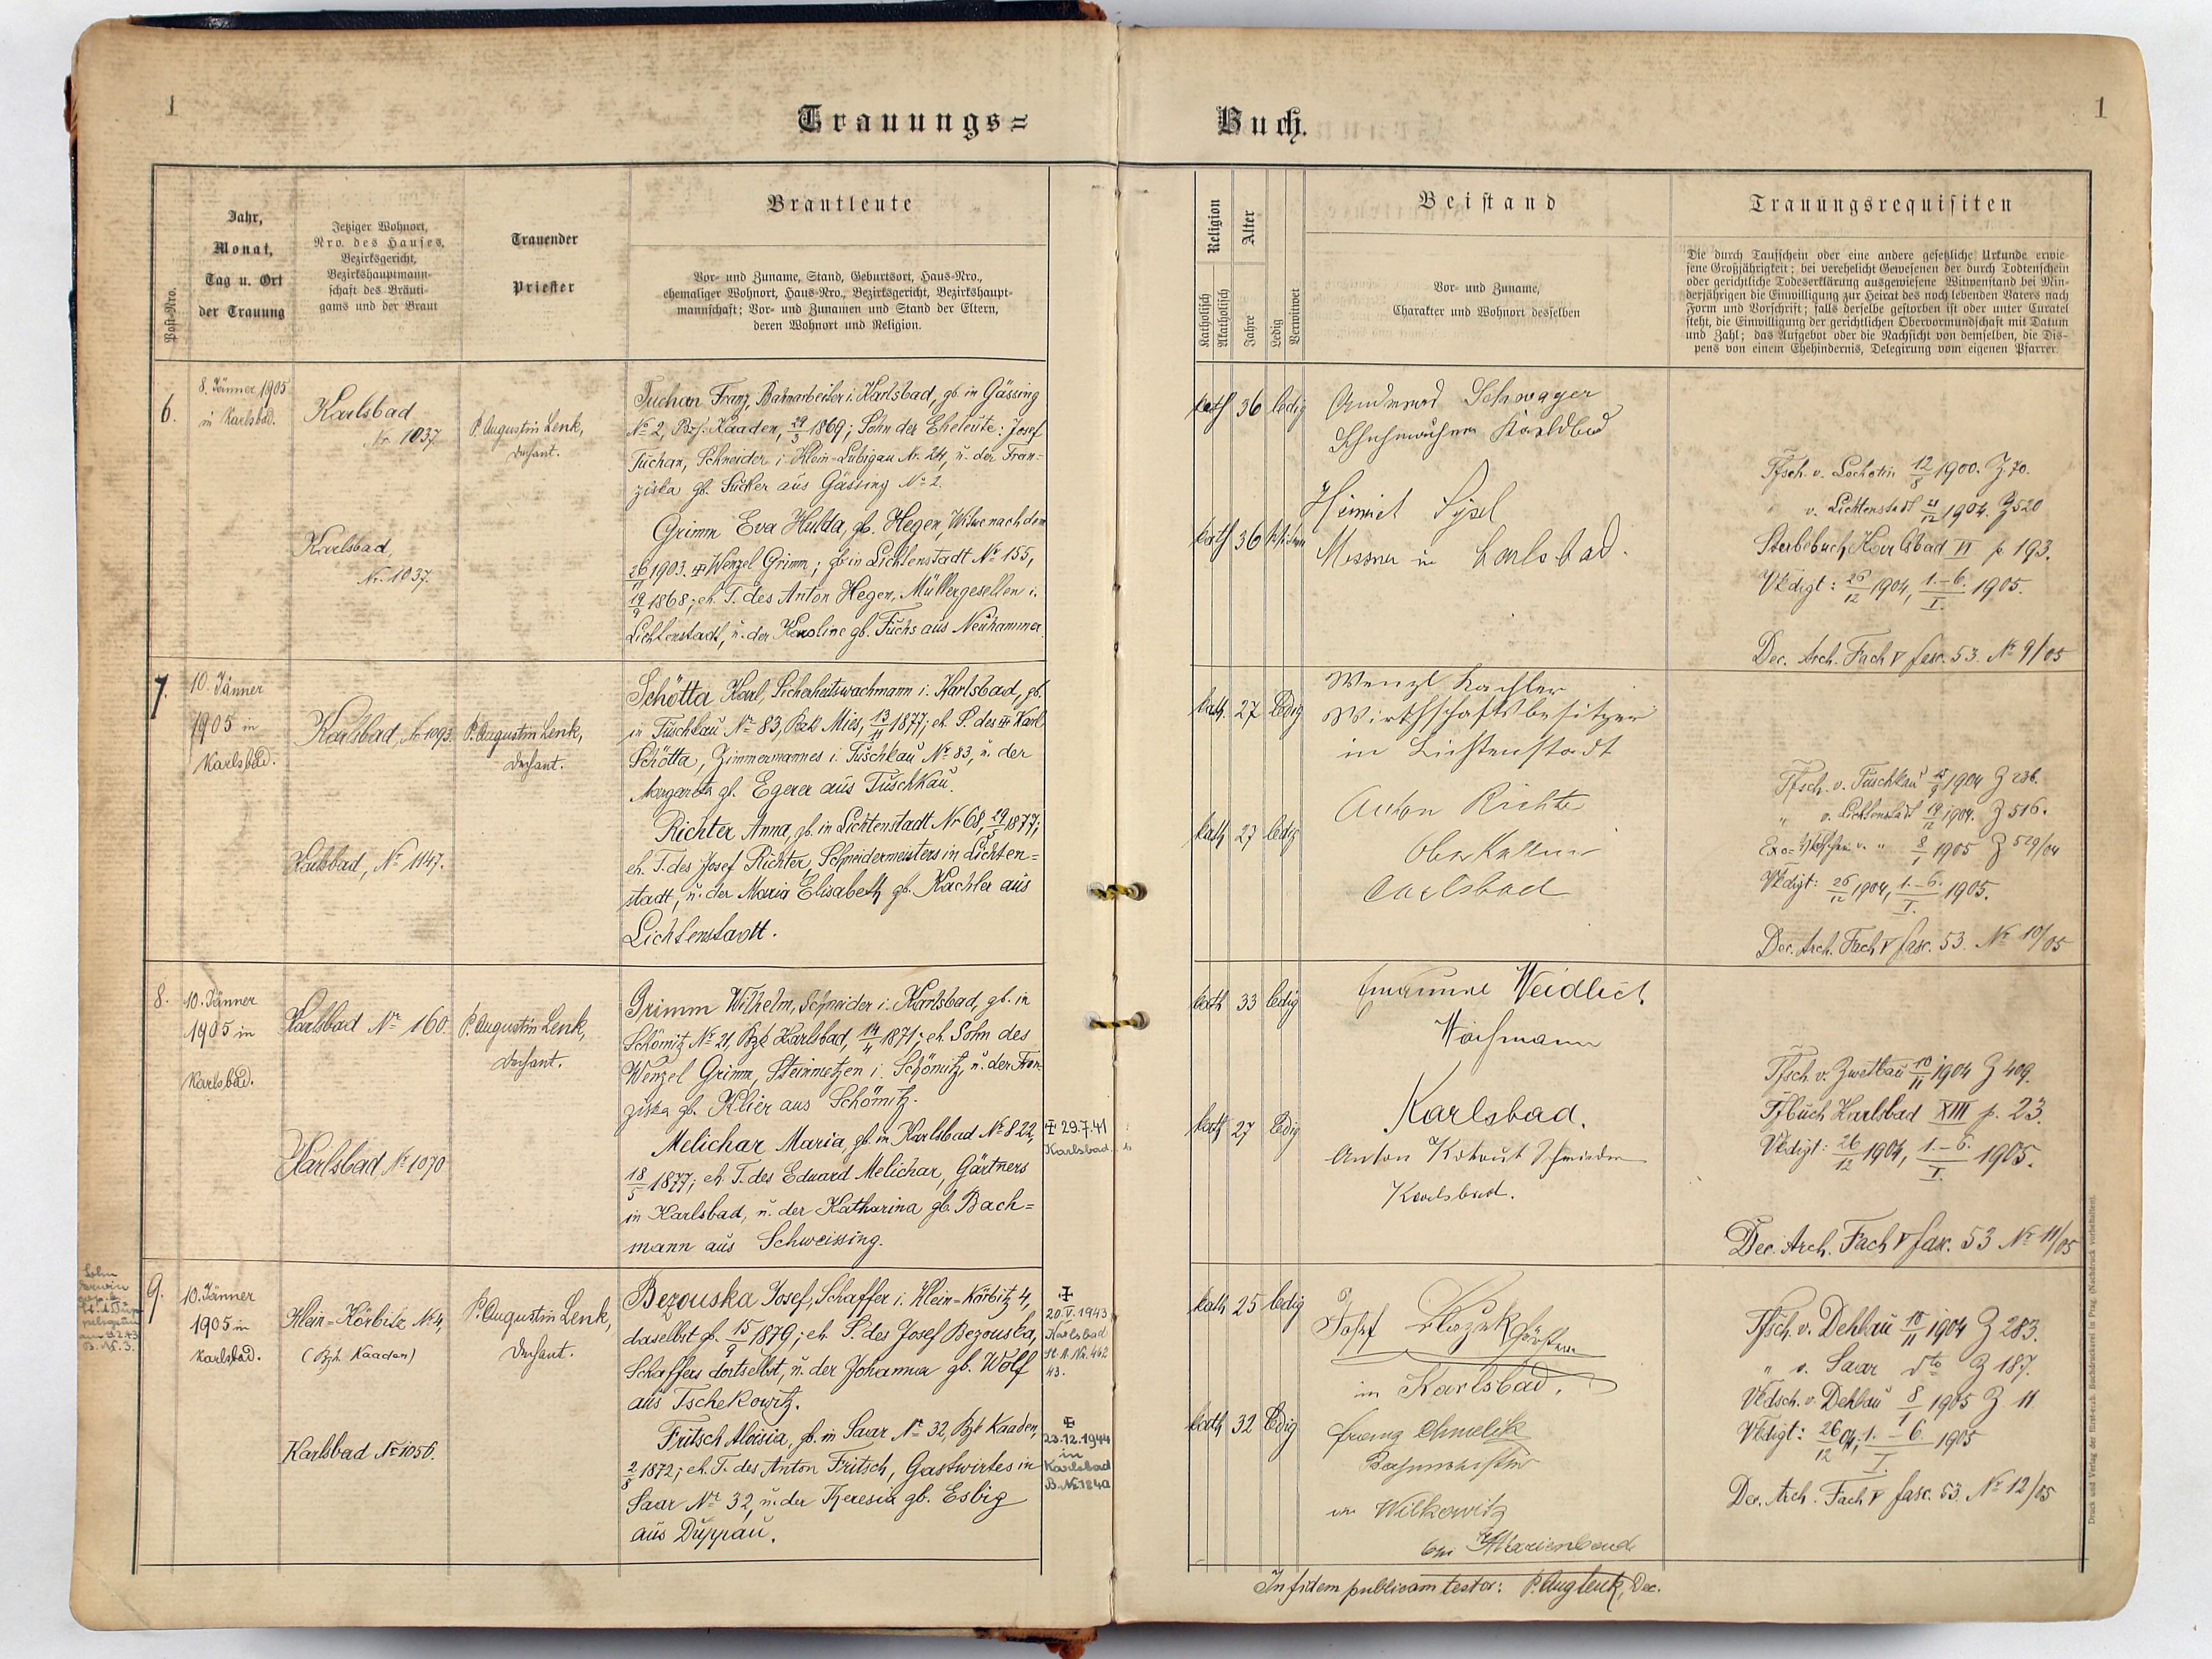 1
Trauungs=
Post-Nro.
Jahr,
Monat,
Tag u. Ort
der Trauung
Jetziger Wohnort,
Nro. des Hauses,
Bezirksgericht,
Bezirkshauptmann-
schaft des Bräuti-
gams und der Braut
Trauender
Priester
Brautleute
Vor- und Zuname, Stand, Geburtsort, Haus-Nro.,
ehemaliger Wohnort, Haus-Nro., Bezirksgericht, Bezirkshaupt-
mannschaft; Vor- und Zunamen und Stand der Eltern,
deren Wohnort und Religion.
6.
8. Jänner 1905
in Karlsbad.
Karlsbad
Nr. 1037
Karlsbad,
Nr. 1037.
P. Augustin Lenk,
Dechant.
Tuchan Franz, Bahnarbeiter i. Karlsbad, gb. in Gässing
No 2, Kaaden, 29/3 1869; Sohn der Eheleute: Josef
Tuchan, Schneider i. Klein-Lubigau Nr. 24, u. der Fran-
ziska gb. Sücker aus Gässing No 2.
Grimm Eva Hulda, gb. Hegen, Witwe nach dem
26/11 1903 ✠ Wenzel Grimm; gb in Lichtenstadt Nr 155,
19/9 1868; eh. T. des Anton Hegen, Müllergesellen i.
Lichtenstadt, u. der Karoline gb. Fuchs aus Neuhammer.
7.
10. Jänner
1905 in
Karlsbad.
Karlsbad, Nr 1093.
Karlsbad, Nr 1147.
P. Augustin Lenk,
Dechant.
Schötta Karl, Sicherheitswachmann i. Karlsbad, gb.
in Tuschkau No 83, Bzk Mies, 13/11 1877; eh. S. des ✠ Karl
Schötta, Zimmermannes i. Tuschkau Nr. 83, u. der
Margareta gb. Egerer aus Tuschkau.
Richter Anna, gb. in Lichtenstadt Nr 68, 29/5 1877;
eh. T. des Josef Richter, Schneidermeisters in Lichten=
stadt, u. der Maria Elisabeth gb. Kachler aus
Lichtenstadt.
8.
10. Jänner
1905 in
Karlsbad.
Karlsbad Nr 160.
Karlsbad Nr 1070
P. Augustin Lenk,
Dechant.
Grimm Wilhelm, Schneider i. Karlsbad, gb. in
Schömitz No 21, Bzk Karlsbad, 14/4 1871; eh. Sohn des
Wenzel Grimm, Steinmetzen i. Schömitz, u. der Fran-
ziska gb. Klier aus Schömitz.
Melichar Maria, gb. in Karlsbad No 822,
18/5 1877; eh. T. des Eduard Melichar, Gärtners
in Karlsbad, u. der Katharina gb. Bach=
mann aus Schweissing.
✠ 29.7.41
Karlsbad.
9.
10. Jänner
1905 in
Karlsbad.
Klein-Körbitz Nr 4,
(Bzk. Kaaden)
Karlsbad Nr 1056.
P. Augustin Lenk,
Dechant.
Bezouska Josef, Schaffer i. Klein-Körbitz 4,
daselbst gb. 15/9 1879; eh. S. des Josef Bezouska,
Schaffers dortselbst, u. der Johanna gb. Wolf
aus Tschekowitz.
Fritsch Aloisia, gb. in Saar No 32, Bzk Kaaden,
2/8 1872; eh. T. des Anton Fritsch, Gastwirtes in
Saar Nr 32, u. der Theresia gb. Esbig
aus Duppau.
✠
20.V.1943
Karlsbad
St. A. Nr. 442
43.
✠
23.12.1944
in
Karlsbad
B. Nr. 1840
Sohn
Erwin
B. Nr. 3.
1
Buch.
Religion
Katholisch
Akatholisch
Alter
Jahre
Ledig
Verwitwet
Beistand
Vor- und Zuname,
Charakter und Wohnort desselben
Trauungsrequisiten
Die durch Taufschein oder eine andere gesetzliche Urkunde erwie-
sene Großjährigkeit; bei verehelicht Gewesenen der durch Todtenschein
oder gerichtliche Todeserklärung ausgewiesene Witwenstand bei Min-
derjährigen die Einwilligung zur Heirat des noch lebenden Vaters nach
Form und Vorschrift; falls derselbe gestorben ist oder unter Curatel
steht, die Einwilligung der gerichtlichen Obervormundschaft mit Datum
und Zahl; das Aufgebot oder die Nachsicht von demselben, die Dis-
pens von einem Ehehindernis, Delegirung vom eigenen Pfarrer.
kath 36 ledig
Schwager
Karlsbad
kath 36 Witwe
Messner in Karlsbad.
Tfsch. v. Lochotin 12/8 1900. Z 70.
" v. Lichtenstadt 21/12 1904. Z 520
Sterbebuch Karlsbad VI p. 193.
Vkdigt: 26/12 1904, 1.-6./I. 1905.
Dec. Arch. Fach V fasc. 53. No 9/05
kath. 27 Ledig
Wenzl Kachler
Wirthschaftsbesitzer
in Lichtenstadt
kath 27 ledig
Anton Richter
Oberkellner
Carlsbad
Tfsch. v. Tuschkau 15/9 1904 Z 236.
" v. Lichtenstadt 19/12 1904. Z 516.
" 8/1 1905 Z 529/04
Vkdigt: 26/12 1904, 1.-6./I. 1905.
Dec. Arch. Fach V fasc. 53. No 10/05
kath 33 ledig
Weidlich
Karlsbad.
kath 27 Ledig
Anton Kohout Schneider
Karlsbad.
Tfsch v. Zwetbau 10/11 1904 Z 409.
Tfbuch Karlsbad XIII p. 23.
Vkdigt: 26/12 1904, 1.-6./I. 1905.
Dec. Arch. Fach V fasc. 53 No 11/05
kath 25 ledig
Josef
in Karlsbad.
kath 32 Ledig
Franz Chmelik
Bahnmeister
in Wilkowitz
bei Marienbad
Tfsch. v. Dehlau 10/11 1904 Z 283.
" v. Saar dto Z 187.
Vkdsch. v. Dehlau 8/1 1905 Z 11
Vkdigt: 26/12 04, 1.-6./I. 1905
Dec. Arch. Fach V fasc. 53. No 12/05
In fidem publicam testor: P. Aug Lenk, Dec.
Druck und Verlag der fürst-erzb. Buchdruckerei in Prag. (Nachdruck vorbehalten).